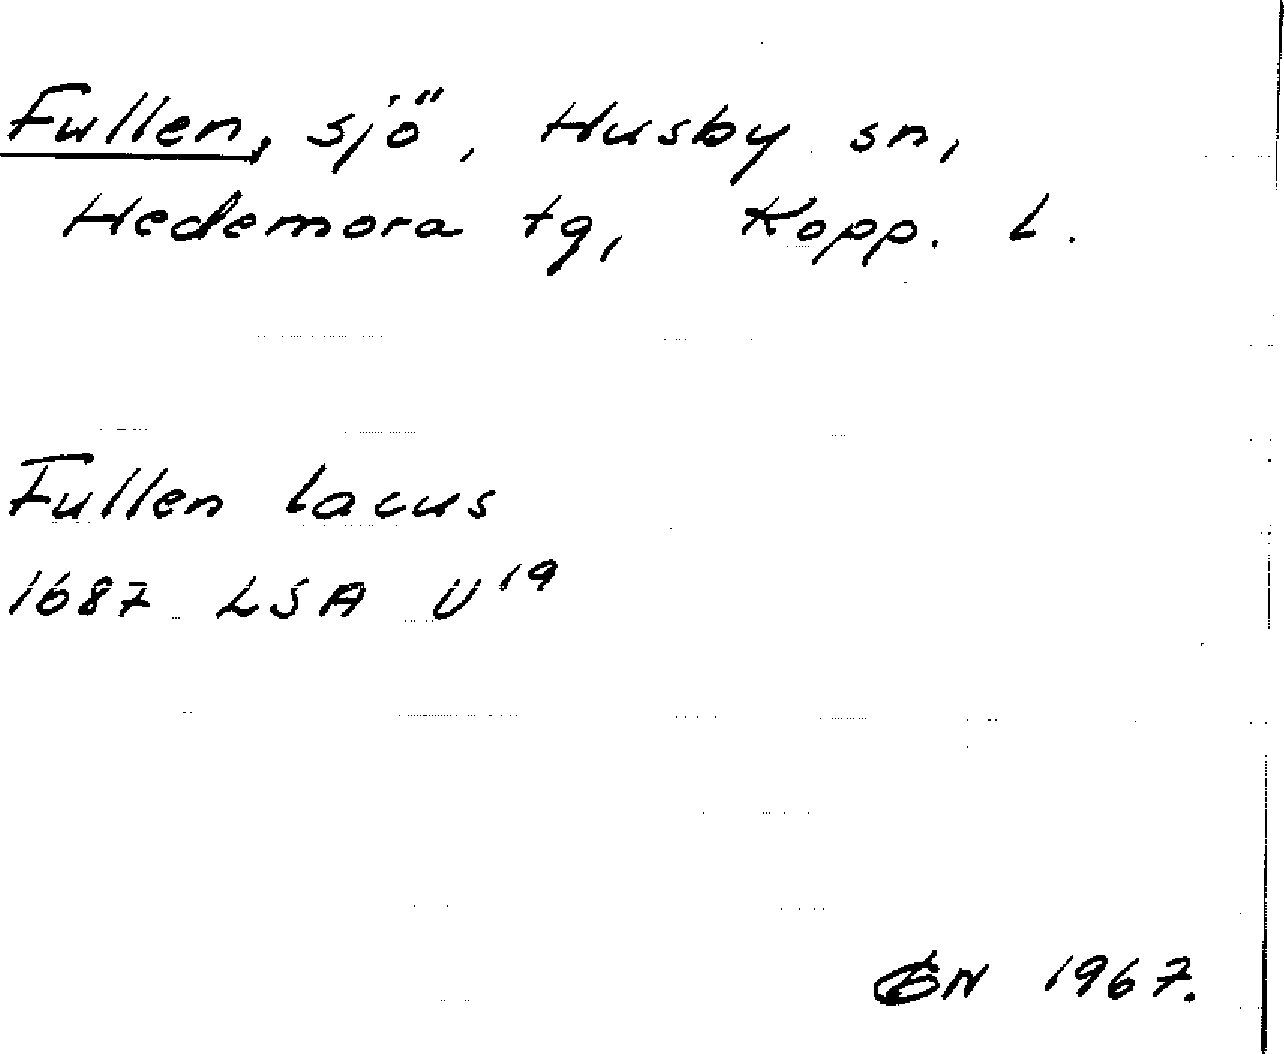 Fullen, sjö, Husby sn,
Hedemora tg, Kopp. L.
Fullen Lacus
1687 LSA U¹⁹
1967.